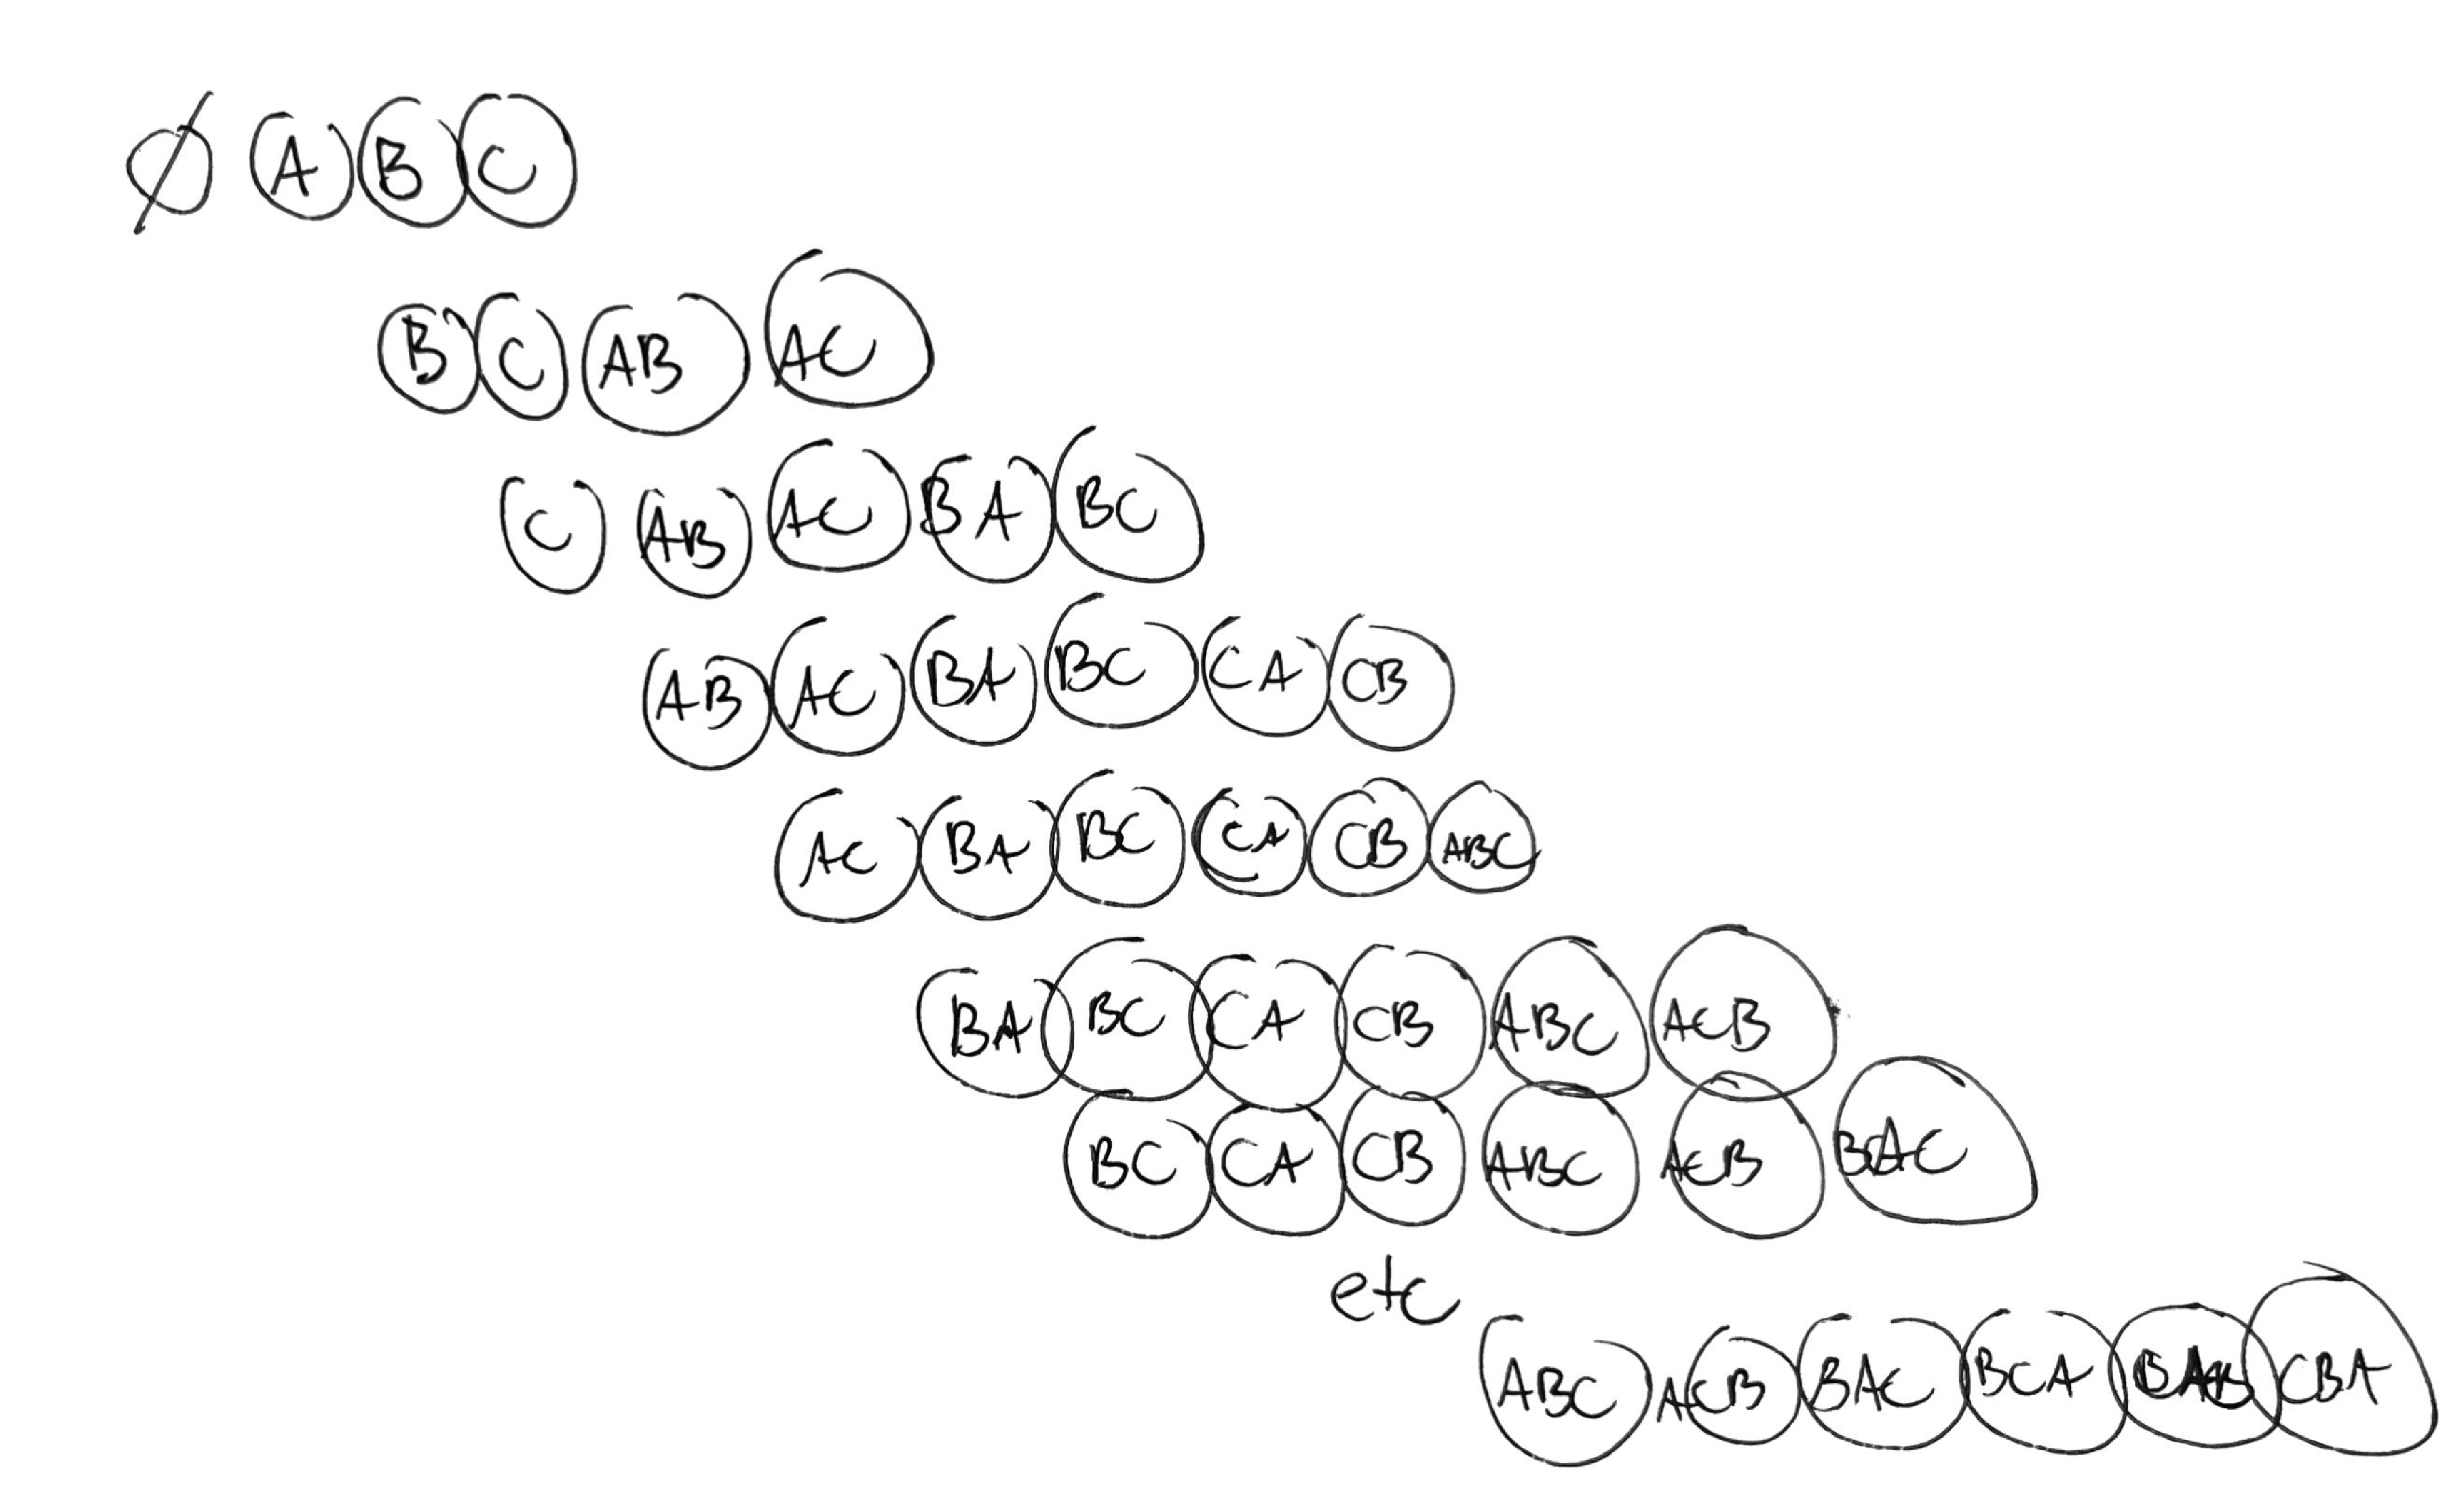 ∅ A B C
B C AB AC
C AB AC BA BC
AB AC BA BC CA CB
AC BA BC CA CB ABC
BA BC CA CB ABC ACB
BC CA CB ABC ACB BAC
etc
ABC ACB BAC BCA CBA